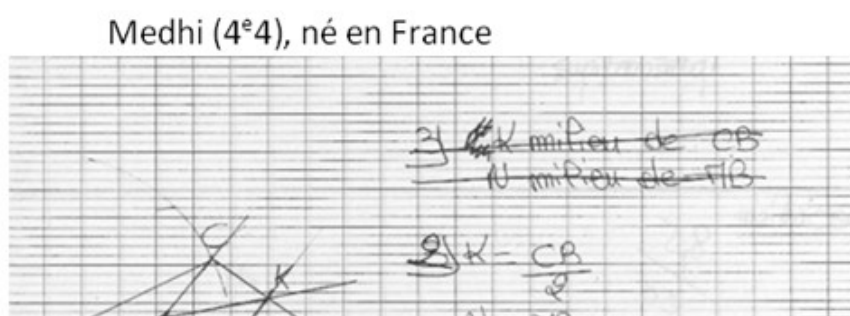 Medhi (4e4), né en France
3) K milieu de CB
N milieu de AB
C
2) K = CB
K
2